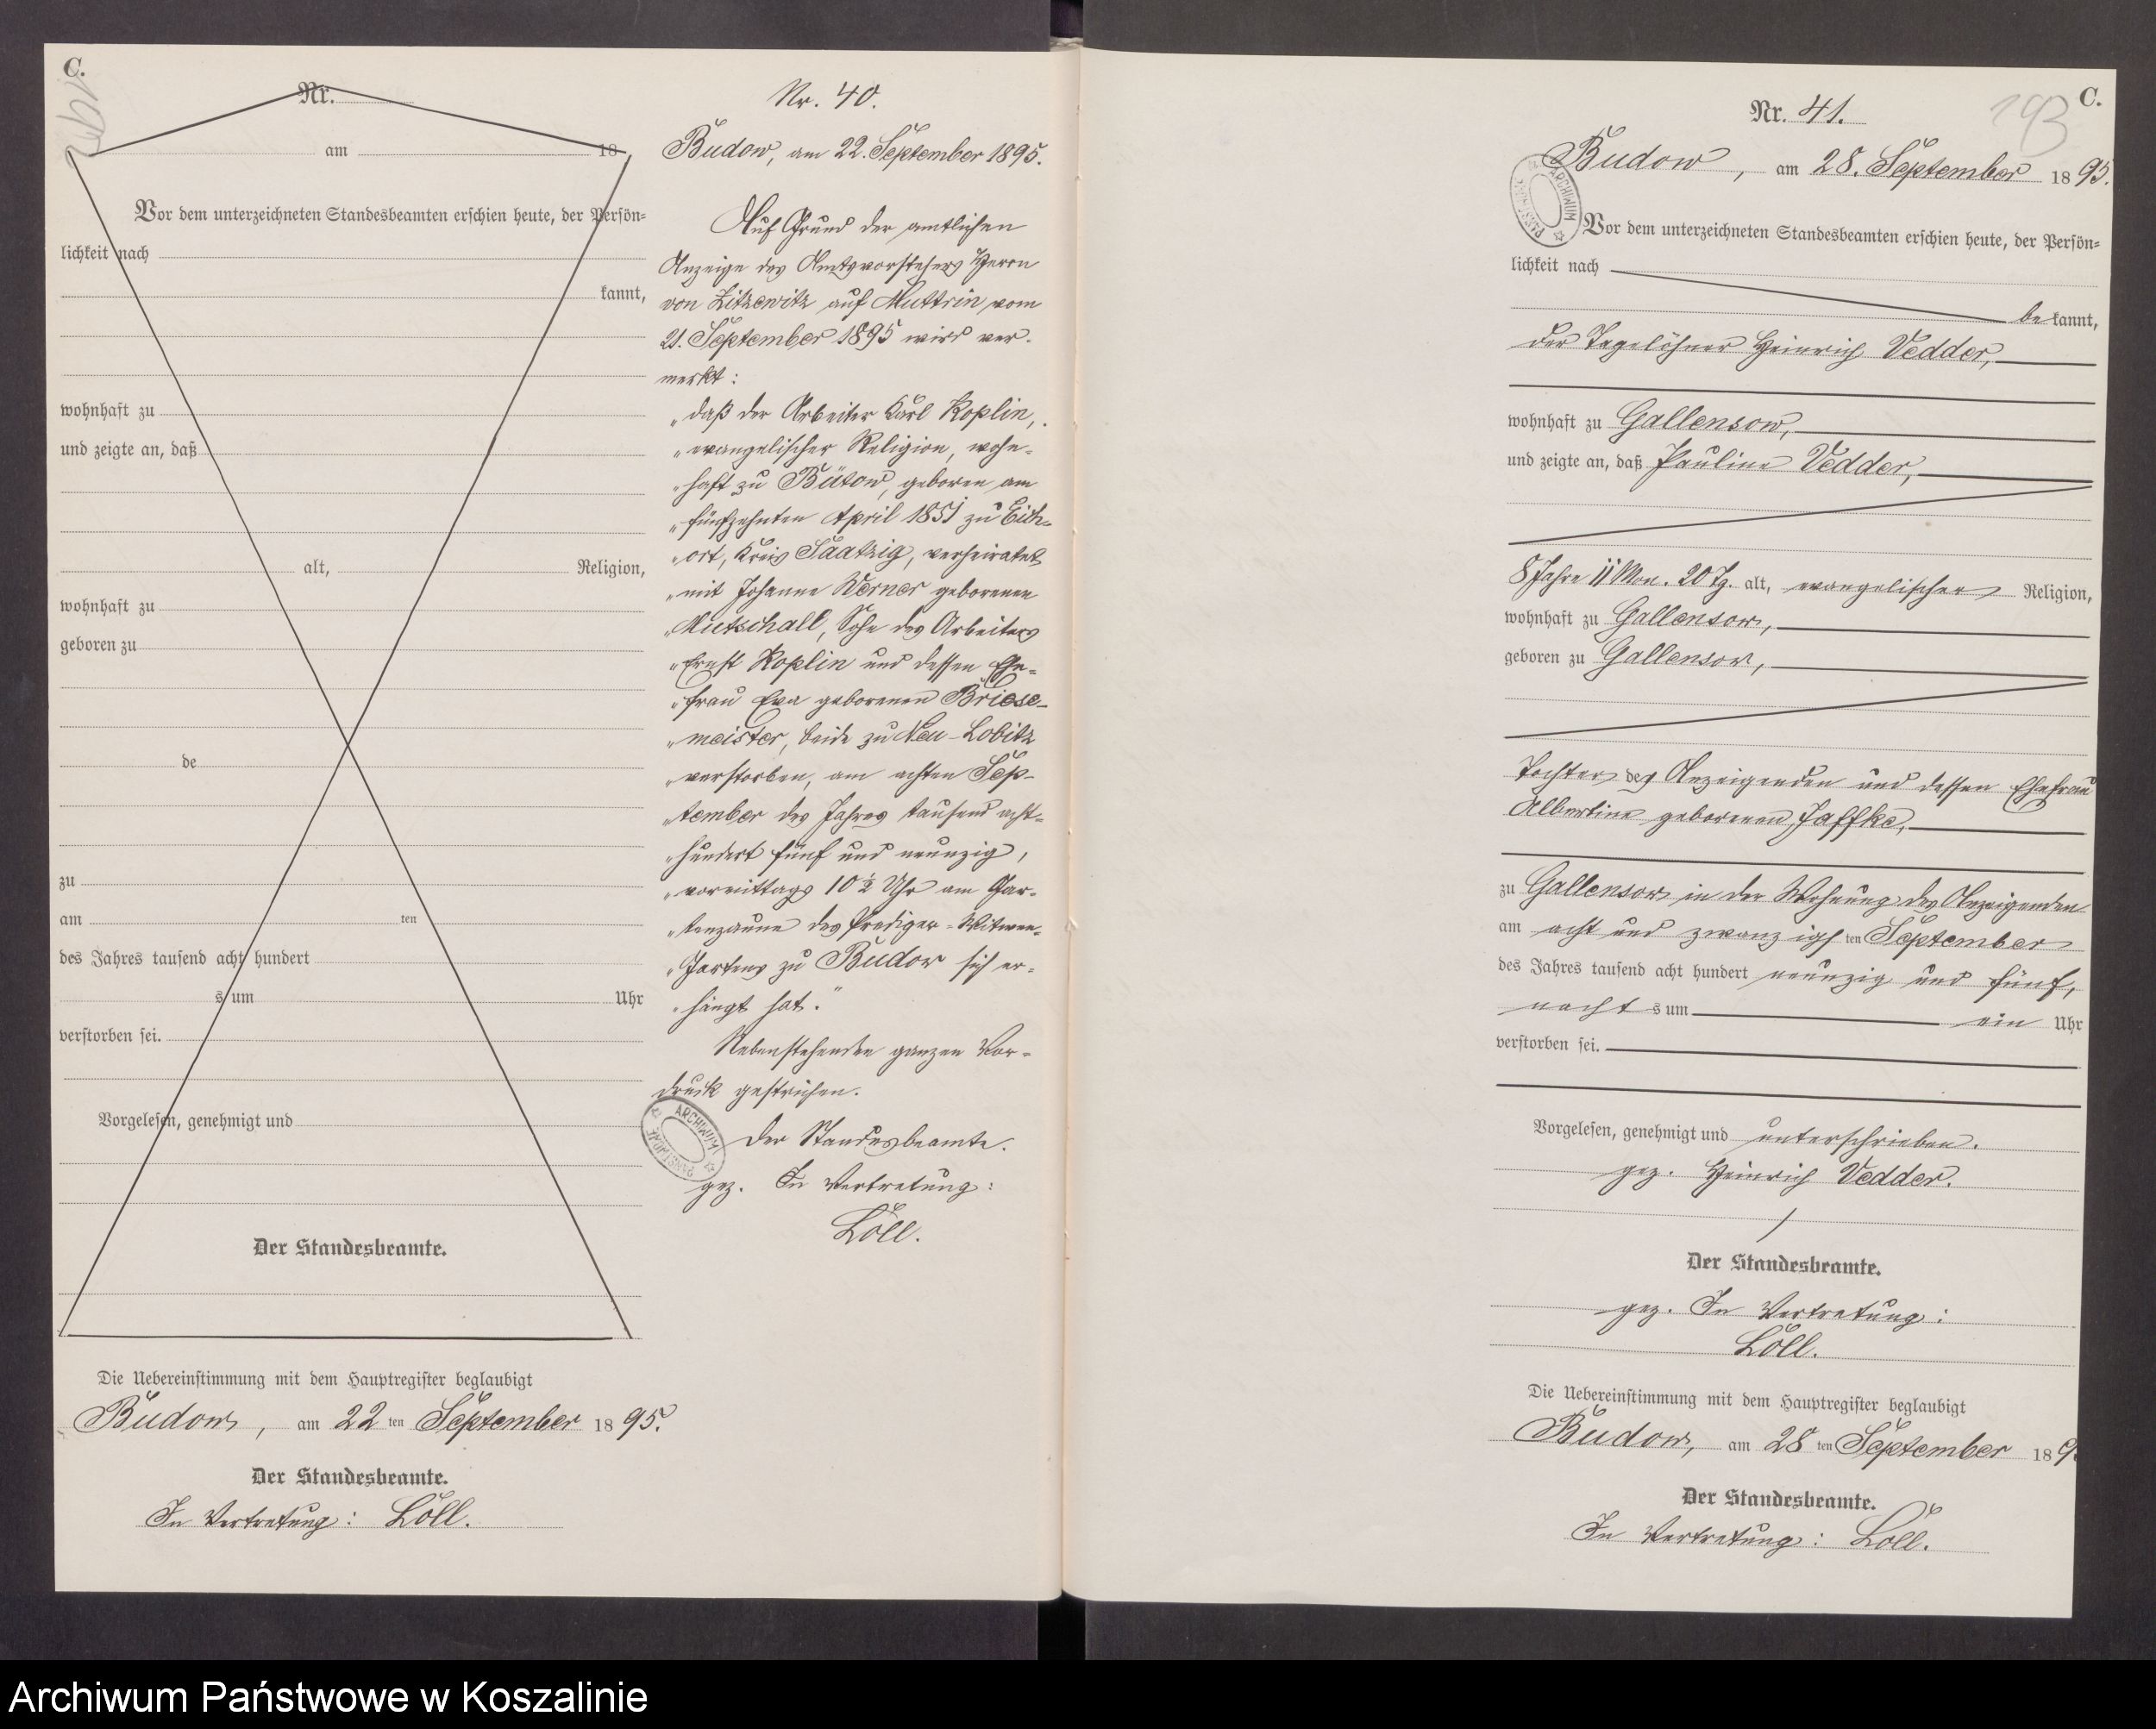 C.
Nr.
am 18
Vor dem unterzeichneten Standesbeamten erschien heute, der Persön-
lichkeit nach
kannt,
wohnhaft zu
und zeigte an, daß
alt, Religion,
wohnhaft zu
geboren zu
de
zu
am ten
des Jahres tausend acht hundert
s um Uhr
verstorben sei.
Vorgelesen, genehmigt und
Der Standesbeamte.
Die Uebereinstimmung mit dem Hauptregister beglaubigt
Budow, am 22 ten September 1895.
Der Standesbeamte.
In Vertretung: Löll.
Nr. 40.
Budow, am 22. September 1895.
Auf Grund der amtlichen
Anzeige des Amtsvorstehers Herrn
von Zitzewitz auf Muttrin vom
21. September 1895 wird ver-
merkt:
„daß der Arbeiter Karl Koplin,
„evangelischer Religion, wohn-
„haft zu Bütow, geboren am
„fünfzehnten April 1851 zu Eich-
„ort, Kreis Saatzig, verheiratet
„mit Johanne Werner geborenen
„Mutschall, Sohn des Arbeiters
„Ernst Koplin und dessen Ehe-
„frau Eva geborenen Briese-
„meister, beide zu Neu-Lobitz
„verstorben, am achten Sep-
„tember des Jahres tausend acht-
„hundert fünf und neunzig,
„vormittags 10 ½ Uhr am Gar-
„tenzaune des Prediger-Witwen-
„Gartens zu Budow sich er-
„hängt hat."
Nebenstehenden ganzen Vor-
druck gestrichen.
Der Standesbeamte.
gez. In Vertretung:
Löll.
ARCHIWUM PAŃSTWOWE
193 C.
Nr. 41.
Budow, am 28. September 1895.
ARCHIWUM PAŃSTWOWE
Vor dem unterzeichneten Standesbeamten erschien heute, der Persön-
lichkeit nach
be kannt,
der Tagelöhner Heinrich Vedder,
wohnhaft zu Gallensow,
und zeigte an, daß Pauline Vedder,
8 Jahre 11 Mon. 20 Tg. alt, evangelischer Religion,
wohnhaft zu Gallensow,
geboren zu Gallensow,
Tochter des Anzeigenden und dessen Ehefrau
Albertine geborenen Jaffke,
zu Gallensow in der Wohnung des Anzeigenden
am acht und zwanzigs ten September
des Jahres tausend acht hundert neunzig und fünf,
nacht s um ein Uhr
verstorben sei.
Vorgelesen, genehmigt und unterschrieben.
gez. Heinrich Vedder.
Der Standesbeamte.
gez. In Vertretung:
Löll.
Die Uebereinstimmung mit dem Hauptregister beglaubigt
Budow, am 28 ten September 189
Der Standesbeamte.
In Vertretung: Löll.
Archiwum Państwowe w Koszalinie